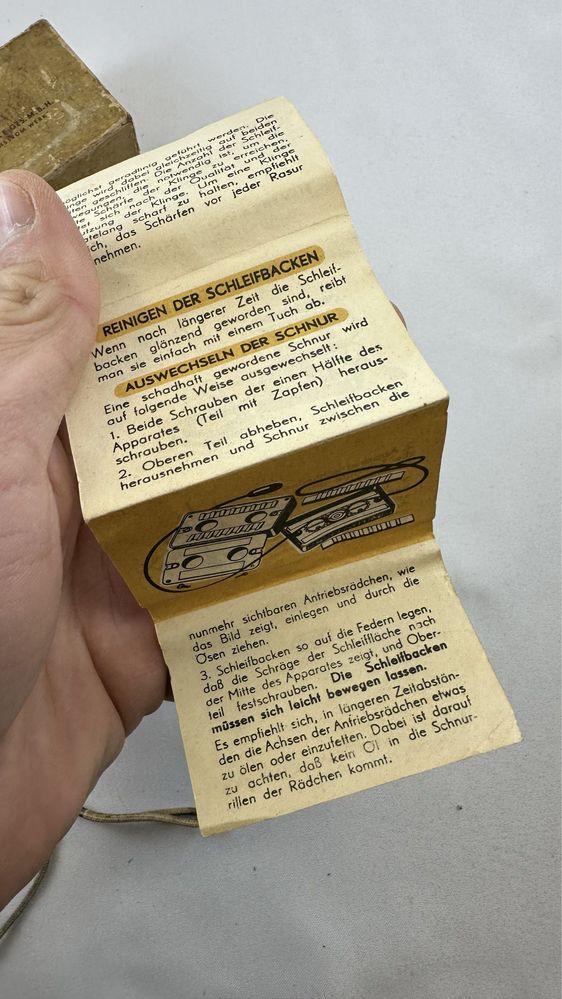 GES.M.B.H.
möglichst geradlinig geführt werden. Die
Klinge wird dabei gleichzeitig auf beiden
geschliffen. Die Anzahl der Schleif-
bewegungen, die notwendig ist, um die
Schärfe der Klinge zu erreichen,
sich nach der Qualität und der
der Klinge. Um eine Klinge
scharf zu halten, empfiehlt
ich, das Schärfen vor jeder Rasur
nehmen.
REINIGEN DER SCHLEIFBACKEN
Wenn nach längerer Zeit die Schleif-
backen glänzend geworden sind, reibt
man sie einfach mit einem Tuch ab.
AUSWECHSELN DER SCHNUR
Eine schadhaft gewordene Schnur wird
auf folgende Weise ausgewechselt:
1. Beide Schrauben der einen Hälfte des
Apparates (Teil mit Zapfen) heraus-
schrauben.
2. Oberen Teil abheben, Schleifbacken
herausnehmen und Schnur zwischen die
nunmehr sichtbaren Antriebsrädchen, wie
das Bild zeigt, einlegen und durch die
Ösen ziehen.
3. Schleifbacken so auf die Federn legen,
daß die Schräge der Schleiffläche nach
der Mitte des Apparates zeigt, und Ober-
teil festschrauben. Die Schleifbacken
müssen sich leicht bewegen lassen.
Es empfiehlt sich, in längeren Zeitabstän-
den die Achsen der Antriebsrädchen etwas
zu ölen oder einzufetten. Dabei ist darauf
zu achten, daß kein Öl in die Schnur-
rillen der Rädchen kommt.